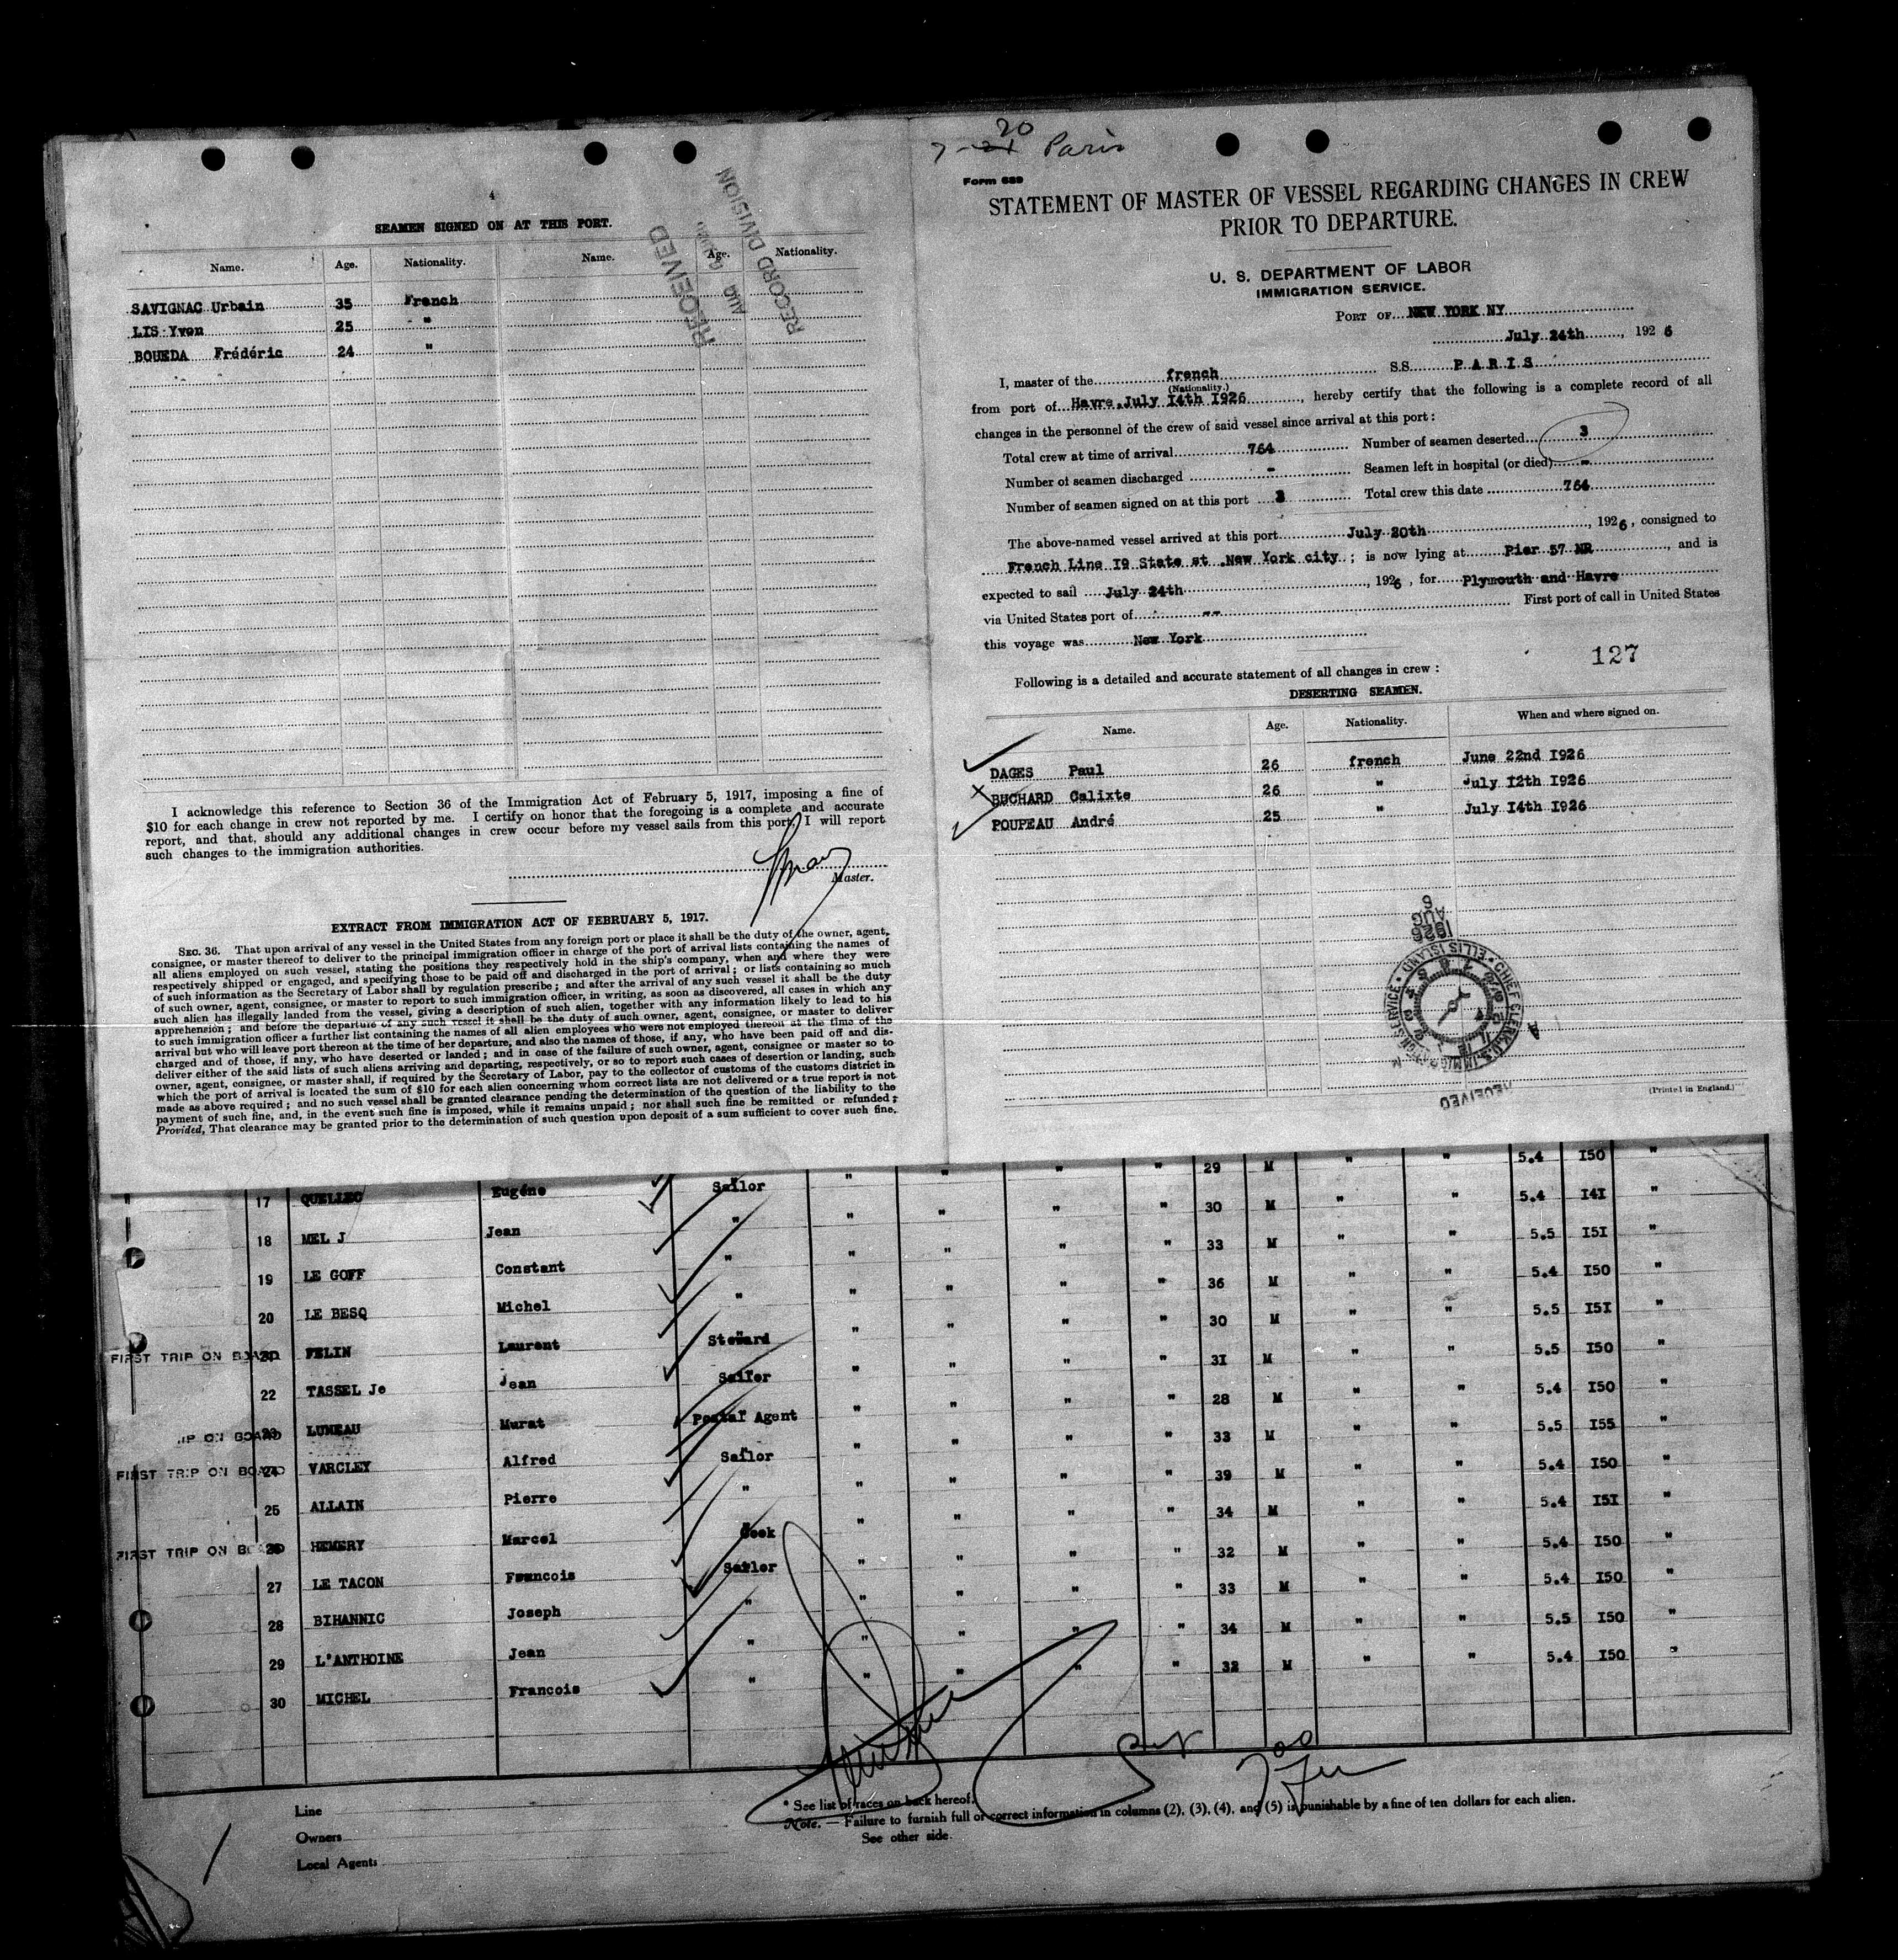 4
SEAMEN SIGNED ON AT THIS PORT.
Name. Age. Nationality. Name. Age. Nationality.
SAVIGNAC Urbain 35 French
LIS Yvon 25 "
BOUEDA Frédéric 24 "
RECEIVED
AUG
RECORD DIVISION
I acknowledge this reference to Section 36 of the Immigration Act of February 5, 1917, imposing a fine of
$10 for each change in crew not reported by me. I certify on honor that the foregoing is a complete and accurate
report, and that, should any additional changes in crew occur before my vessel sails from this port, I will report
such changes to the immigration authorities.
Master.
EXTRACT FROM IMMIGRATION ACT OF FEBRUARY 5, 1917.
SEC. 36. That upon arrival of any vessel in the United States from any foreign port or place it shall be the duty of the owner, agent,
consignee, or master thereof to deliver to the principal immigration officer in charge of the port of arrival lists containing the names of
all aliens employed on such vessel, stating the positions they respectively hold in the ship's company, when and where they were
respectively shipped or engaged, and specifying those to be paid off and discharged in the port of arrival; or lists containing so much
of such information as the Secretary of Labor shall by regulation prescribe; and after the arrival of any such vessel it shall be the duty
of such owner, agent, consignee, or master to report to such immigration officer, in writing, as soon as discovered, all cases in which any
such alien has illegally landed from the vessel, giving a description of such alien, together with any information likely to lead to his
apprehension; and before the departure of any such vessel it shall be the duty of such owner, agent, consignee, or master to deliver
to such immigration officer a further list containing the names of all alien employees who were not employed thereon at the time of the
arrival but who will leave port thereon at the time of her departure, and also the names of those, if any, who have been paid off and dis-
charged and of those, if any, who have deserted or landed; and in case of the failure of such owner, agent, consignee or master so to
deliver either of the said lists of such aliens arriving and departing, respectively, or so to report such cases of desertion or landing, such
owner, agent, consignee, or master shall, if required by the Secretary of Labor, pay to the collector of customs of the customs district in
which the port of arrival is located the sum of $10 for each alien concerning whom correct lists are not delivered or a true report is not
made as above required; and no such vessel shall be granted clearance pending the determination of the question of the liability to the
payment of such fine, and, in the event such fine is imposed, while it remains unpaid; nor shall such fine be remitted or refunded;
Provided, That clearance may be granted prior to the determination of such question upon deposit of a sum sufficient to cover such fine.
20
7-21 Paris
Form 689
STATEMENT OF MASTER OF VESSEL REGARDING CHANGES IN CREW
PRIOR TO DEPARTURE.
U. S. DEPARTMENT OF LABOR
IMMIGRATION SERVICE.
PORT OF NEW YORK NY
July 24th, 1926
I, master of the french SS. P A R I S
(Nationality.)
from port of Havre, July I4th I926, hereby certify that the following is a complete record of all
changes in the personnel of the crew of said vessel since arrival at this port:
Total crew at time of arrival 764 Number of seamen deserted 3
Number of seamen discharged - Seamen left in hospital (or died) -
Number of seamen signed on at this port 3 Total crew this date 764
The above-named vessel arrived at this port July 20th, 1926, consigned to
French Line I9 State st. New York city; is now lying at Pier 57 NR, and is
expected to sail July 24th, 1926, for Plymouth and Havre
via United States port of -- First port of call in United States
this voyage was New York
127
Following is a detailed and accurate statement of all changes in crew:
DESERTING SEAMEN.
Name. Age. Nationality. When and where signed on.
DAGES Paul 26 french June 22nd I926
BUCHARD Calixte 26 " July I2th I926
POUPEAU André 25 " July I4th I926
1926
AUG
6
CHIEF CLERK, U.S. IMMIGRATION SERVICE • ELLIS ISLAND •
RECEIVED
(Printed in England.)
29 M " " 5.4 I50 "
17 QUELLEC Eugéne Sailor " " " " 30 M " " 5.4 I4I "
18 MEL J Jean " " " " " 33 M " " 5.5 I5I "
19 LE GOFF Constant " " " " " 36 M " " 5.4 I50 "
20 LE BESQ Michel " " " " " 30 M " " 5.5 I5I "
FIRST TRIP ON BOARD 21 FELIN Laurent Steward " " " " 3I M " " 5.5 I50 "
22 TASSEL Je Jean Sailor " " " " 28 M " " 5.4 I50 "
IP ON BOARD 23 LUMEAU Murat Postal Agent " " " " 33 M " " 5.5 I55 "
FIRST TRIP ON BOARD 24 VARCLEY Alfred Sailor " " " " 39 M " " 5.4 I50 "
25 ALLAIN Pierre " " " " " 34 M " " 5.4 I5I "
FIRST TRIP ON BOARD 26 HEMERY Marcel Cook " " " " 32 M " " 5.4 I50 "
27 LE TACON Francois Sailor " " " " 33 M " " 5.4 I50 "
28 BIHANNIC Joseph " " " " " 34 M " " 5.5 I50 "
29 L'ANTHOINE Jean " " " " " 32 M " " 5.4 I50 "
30 MICHEL Francois "
Line
Owners
Local Agents
* See list of races on back hereof.
Note. — Failure to furnish full or correct information in columns (2), (3), (4), and (5) is punishable by a fine of ten dollars for each alien.
See other side.